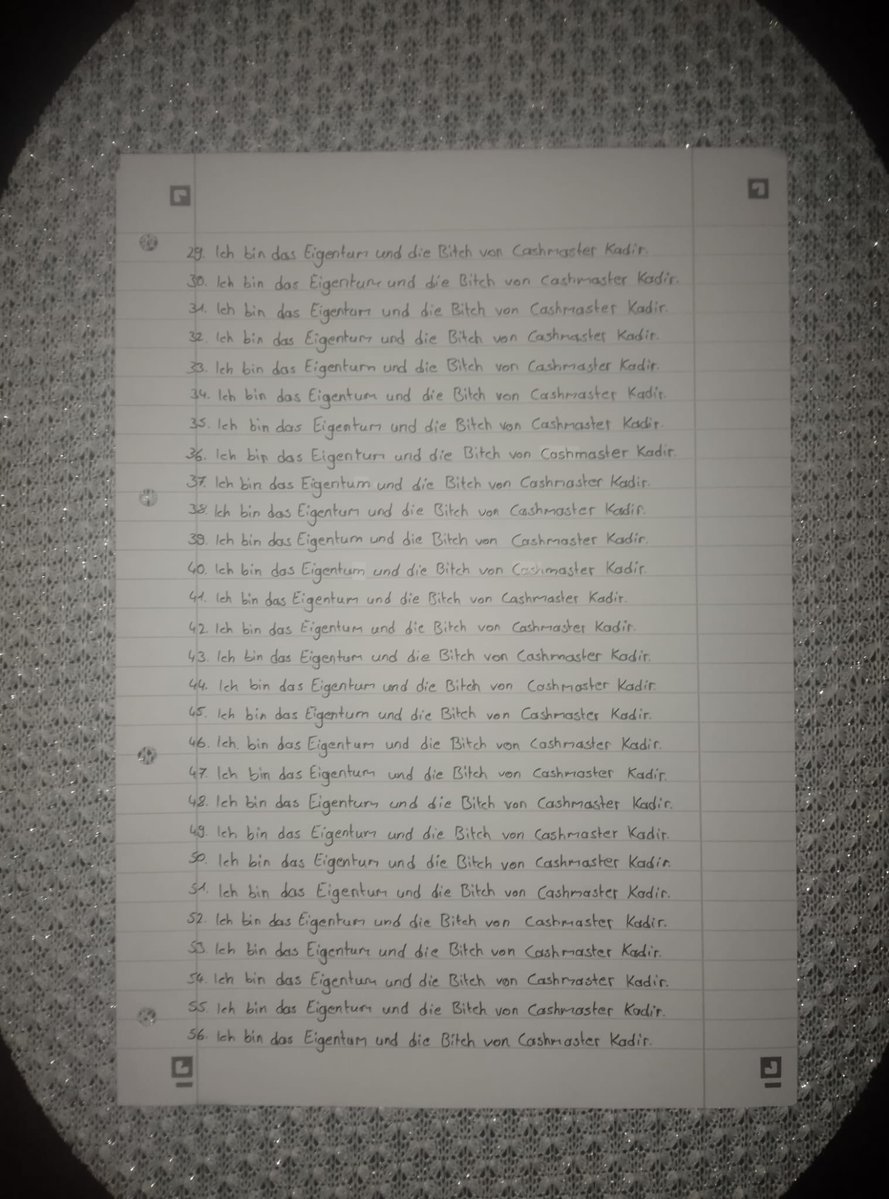 29. Ich bin das Eigentum und die Bitch von Cashmaster Kadir.
30. Ich bin das Eigentum und die Bitch von Cashmaster Kadir.
31. Ich bin das Eigentum und die Bitch von Cashmaster Kadir.
32. Ich bin das Eigentum und die Bitch von Cashmaster Kadir.
33. Ich bin das Eigentum und die Bitch von Cashmaster Kadir.
34. Ich bin das Eigentum und die Bitch von Cashmaster Kadir.
35. Ich bin das Eigentum und die Bitch von Cashmaster Kadir.
36. Ich bin das Eigentum und die Bitch von Cashmaster Kadir.
37. Ich bin das Eigentum und die Bitch von Cashmaster Kadir.
38. Ich bin das Eigentum und die Bitch von Cashmaster Kadir.
39. Ich bin das Eigentum und die Bitch von Cashmaster Kadir.
40. Ich bin das Eigentum und die Bitch von Cashmaster Kadir.
41. Ich bin das Eigentum und die Bitch von Cashmaster Kadir.
42. Ich bin das Eigentum und die Bitch von Cashmaster Kadir.
43. Ich bin das Eigentum und die Bitch von Cashmaster Kadir.
44. Ich bin das Eigentum und die Bitch von Cashmaster Kadir
45. Ich bin das Eigentum und die Bitch von Cashmaster Kadir.
46. Ich bin das Eigentum und die Bitch von Cashmaster Kadir.
47. Ich bin das Eigentum und die Bitch von Cashmaster Kadir.
48. Ich bin das Eigentum und die Bitch von Cashmaster Kadir.
49. Ich bin das Eigentum und die Bitch von Cashmaster Kadir.
50. Ich bin das Eigentum und die Bitch von Cashmaster Kadir.
51. Ich bin das Eigentum und die Bitch von Cashmaster Kadir.
52. Ich bin das Eigentum und die Bitch von Cashmaster Kadir.
53. Ich bin das Eigentum und die Bitch von Cashmaster Kadir.
54. Ich bin das Eigentum und die Bitch von Cashmaster Kadir.
55. Ich bin das Eigentum und die Bitch von Cashmaster Kadir.
56. Ich bin das Eigentum und die Bitch von Cashmaster Kadir.